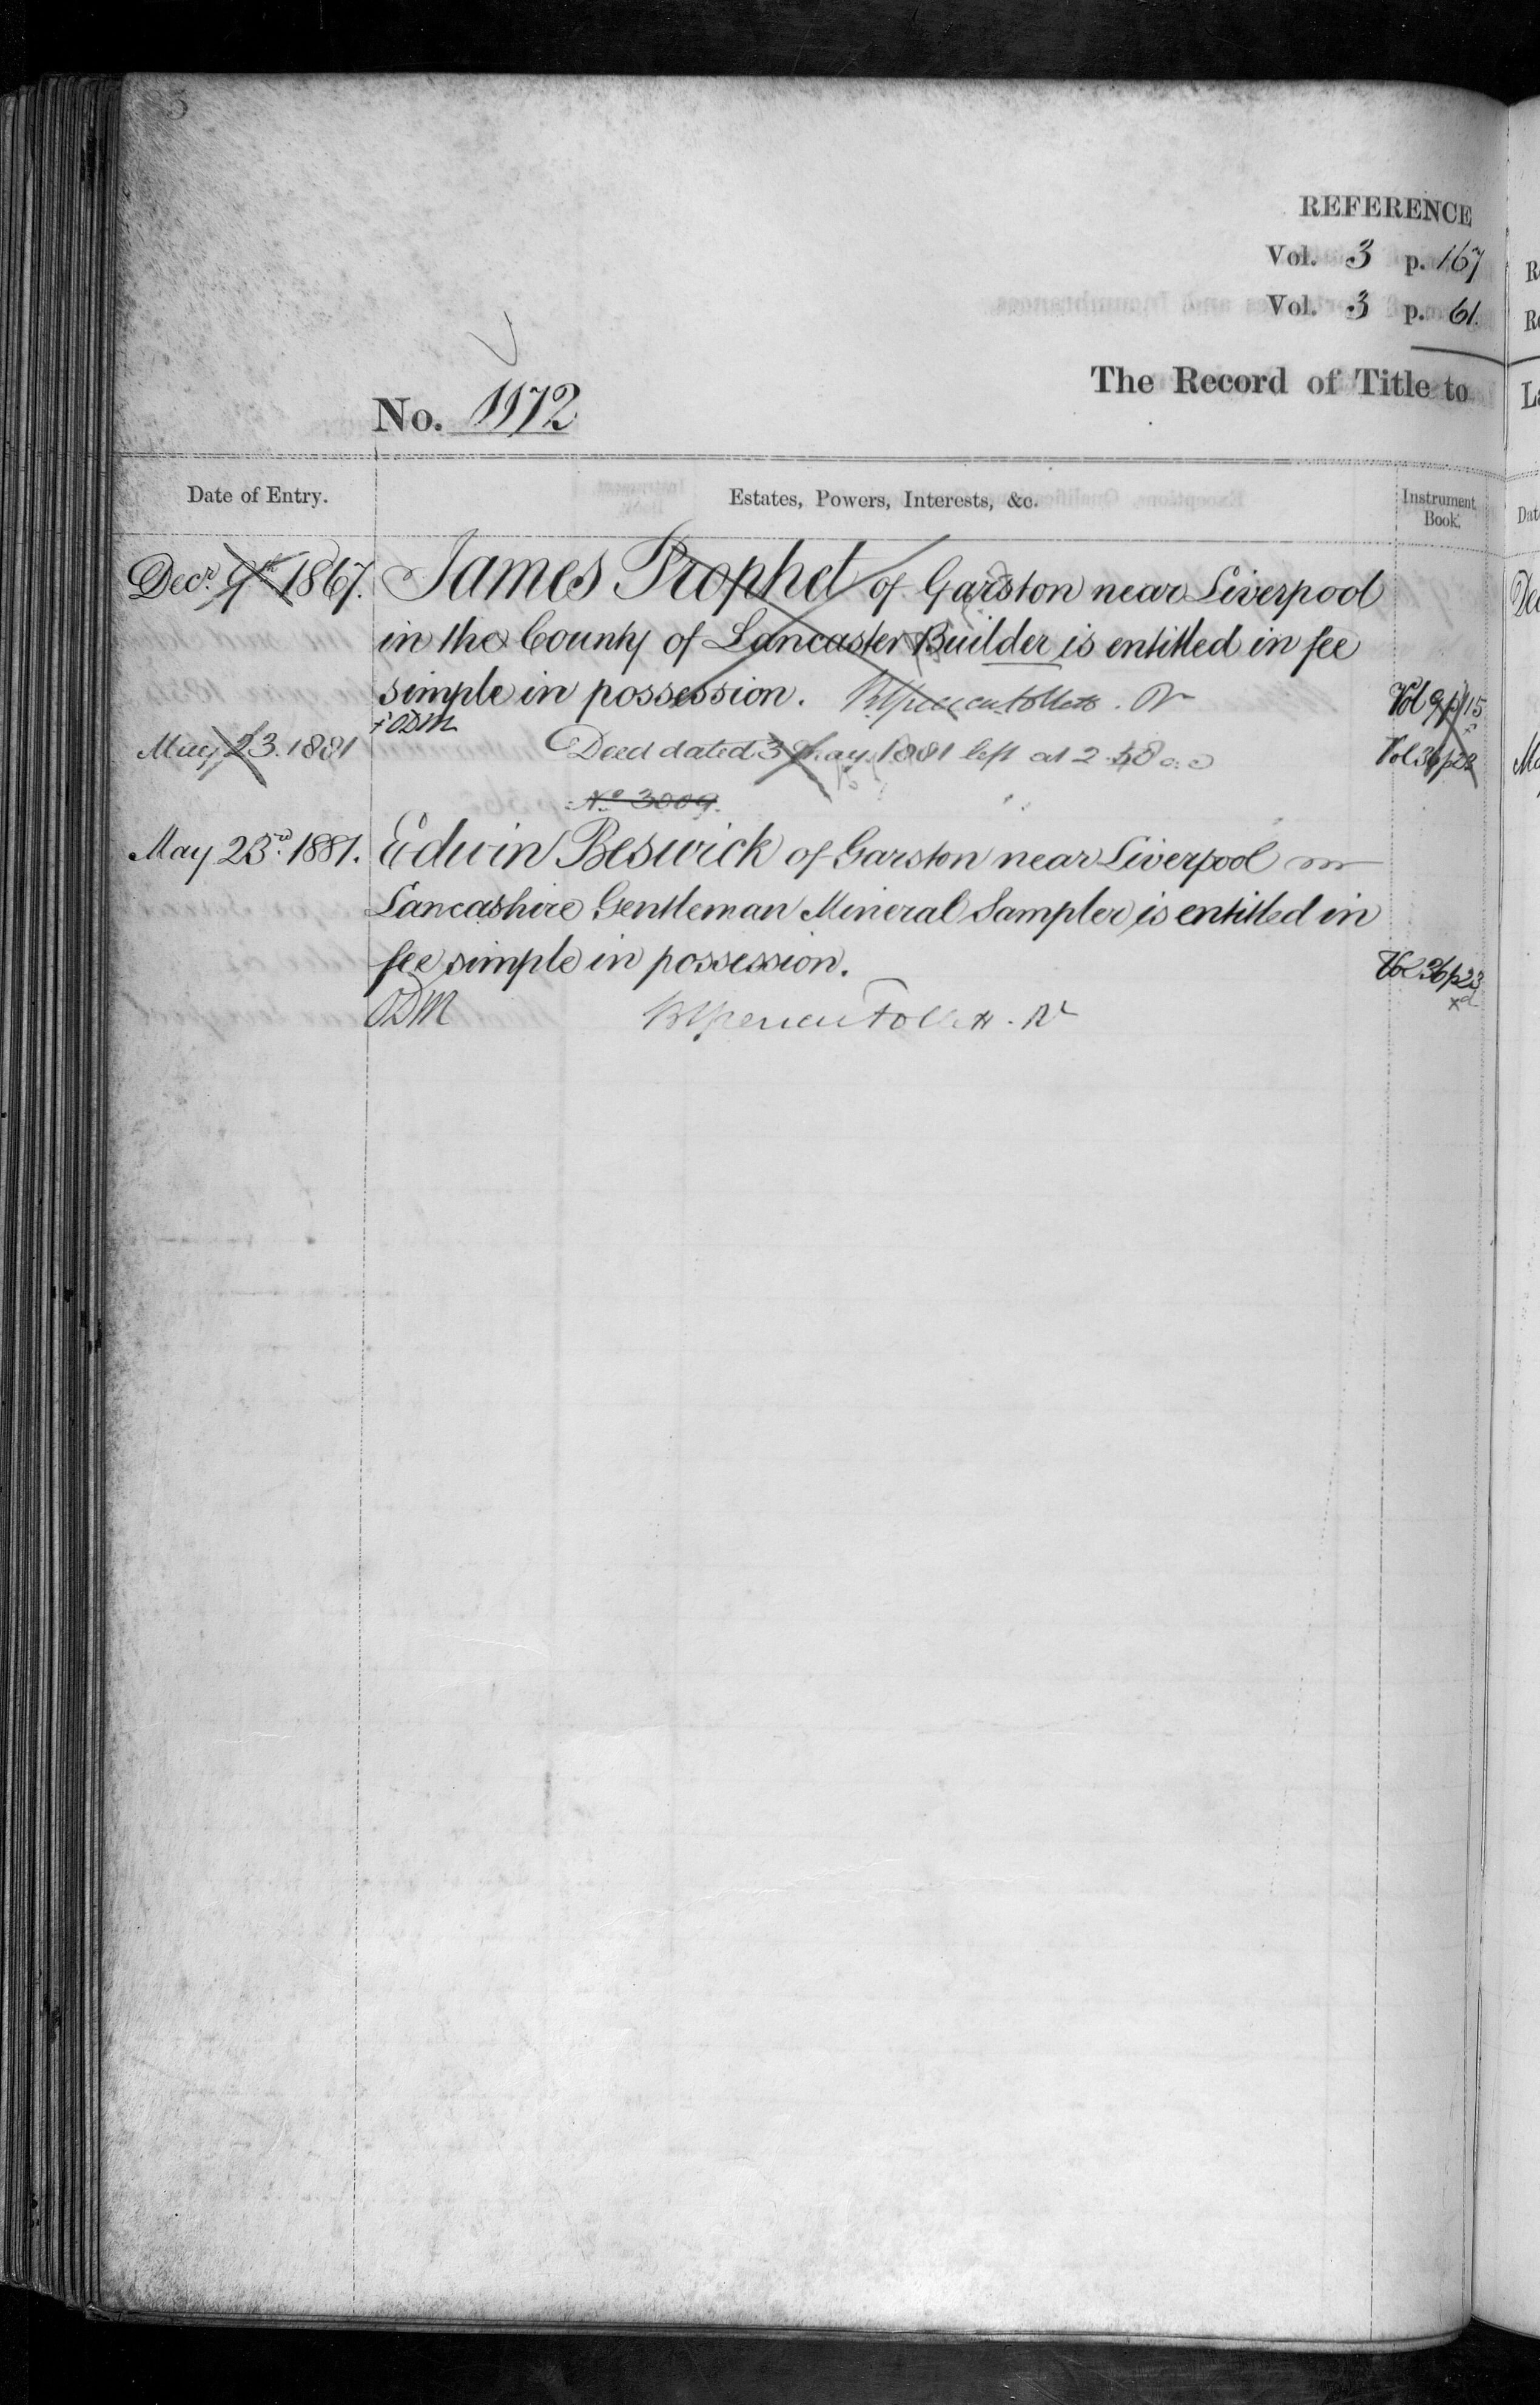 REFERENCE
Vol. 3 p. 167
Vol. 3 p. 61.
The Record of Title to
No. 1172
Date of Entry.
Estates, Powers, Interests, &c.
Instrument Book.
Decr. 9th 1867. James Prophet of Garston near Liverpool
in the County of Lancaster Builder is entitled in fee
simple in possession. Follett. Rr Vol 9 p 115
ODM
May 23. 1881 Deed dated 3 May 1881 left at 2.58 Vol 36 p 23
No 3009.
May 23rd. 1881. Edwin Beswick of Garston near Liverpool in
Lancashire Gentleman Mineral Sampler is entitled in
fee simple in possession. Vol 36 p 23
ODM Follett. Rr